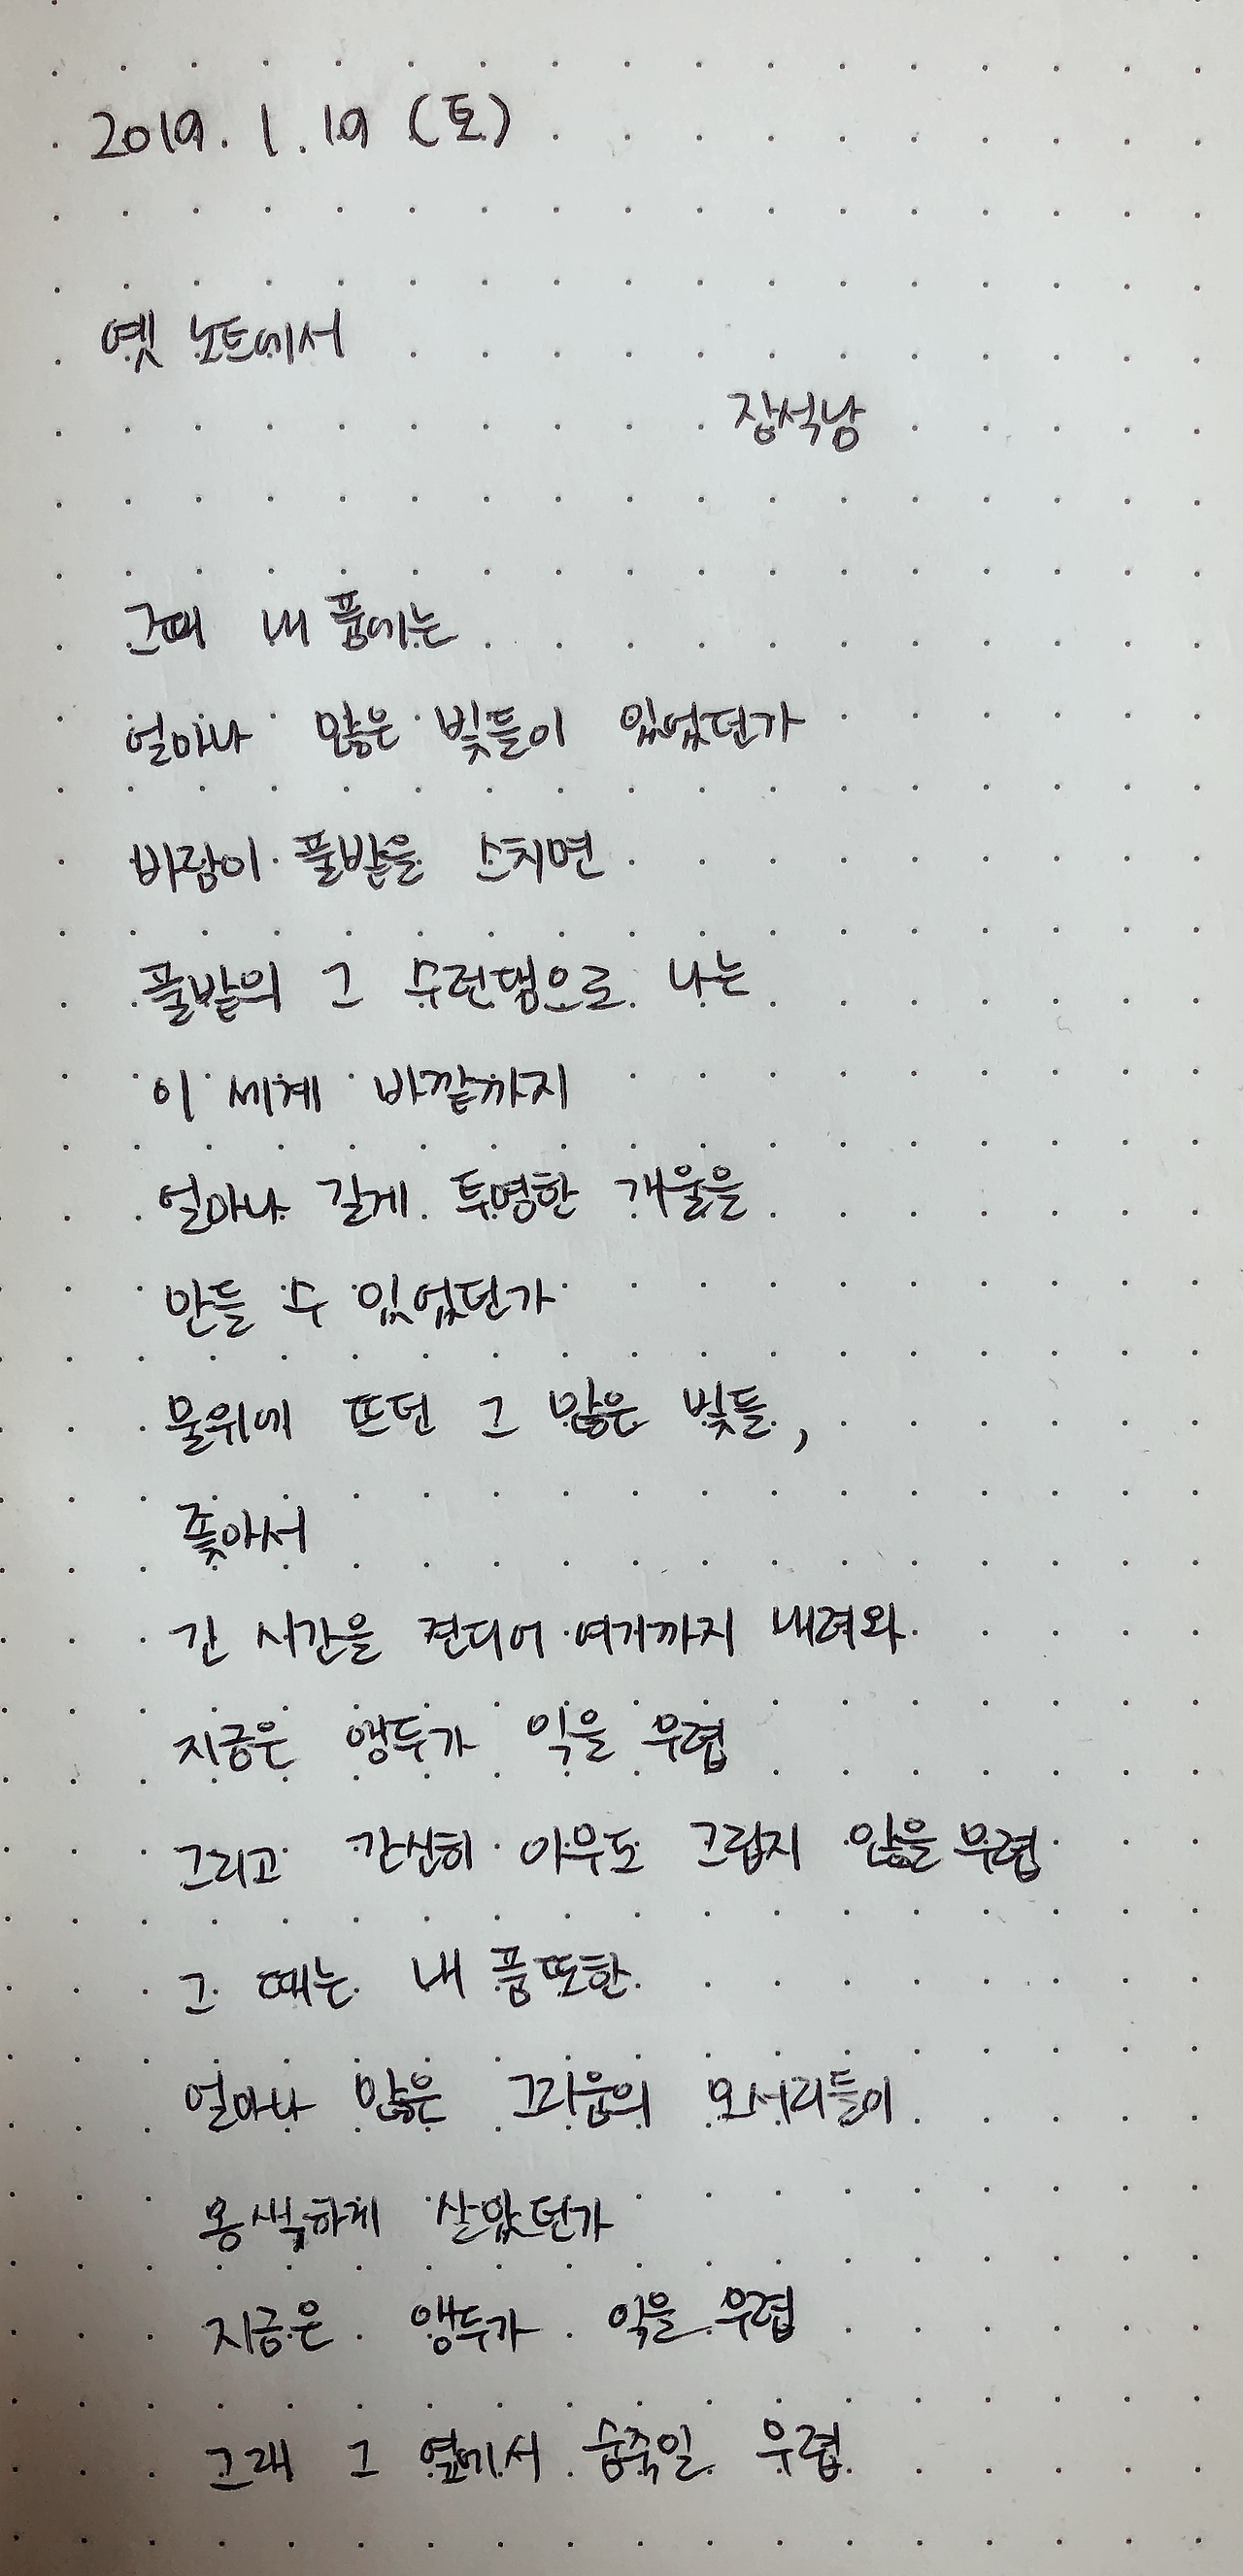 2019. 1. 19 (토)
옛 노트에서
장석남
그때 내 품에는
얼마나 많은 빛들이 있었던가
바람이 풀밭을 스치면
풀밭의 그 수런댐으로 나는
이 세계 바깥까지
얼마나 길게 투명한 개울을
만들 수 있었던가
물위에 뜨던 그 많은 빛들,
좇아서
긴 시간을 견디어 여기까지 내려와
지금은 앵두가 익을 무렵
그리고 간신히 아무도 그립지 않을 무렵
그 때는 내 품 또한
얼마나 많은 그리움의 모서리들이
옹색하게 살았던가
지금은 앵두가 익을 무렵
그래 그 옆에서 숨죽일 무렵